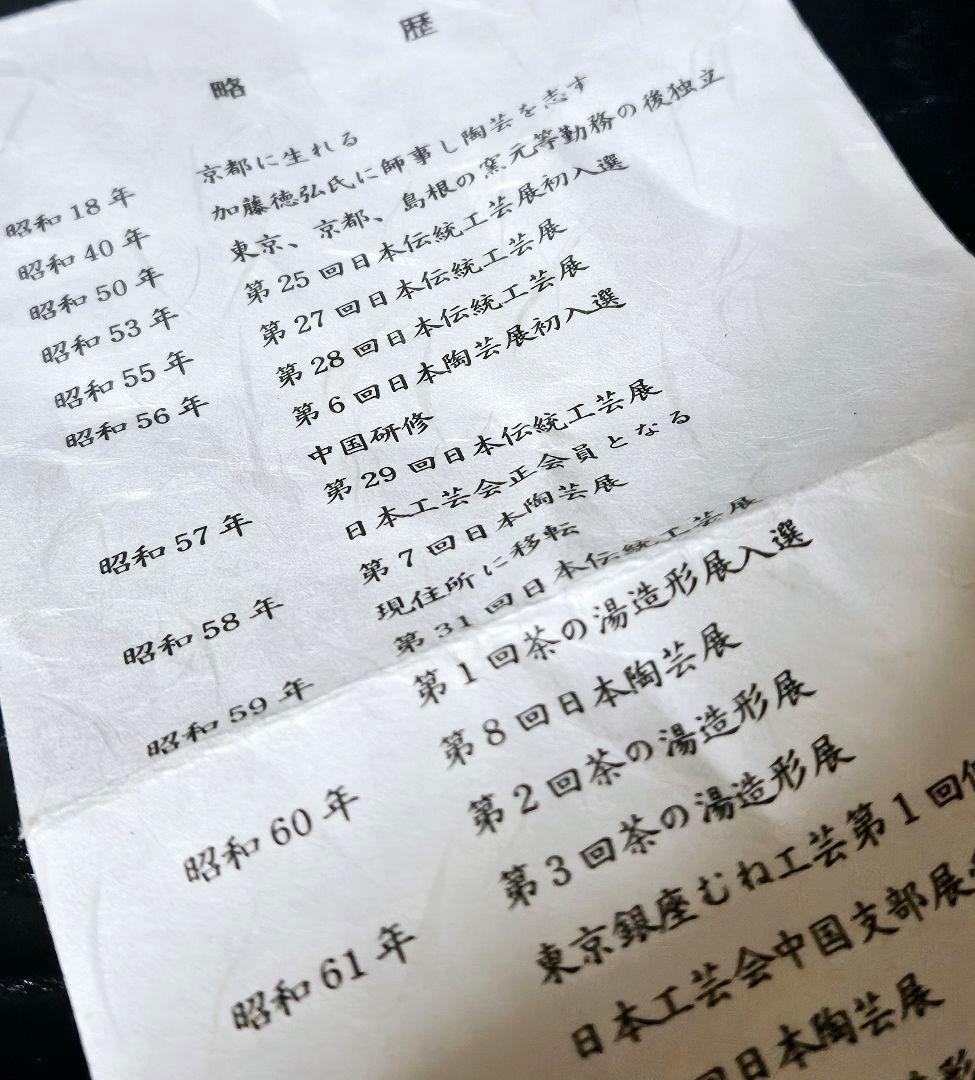 略歴
昭和18年 京都に生れる
昭和40年 加藤徳弘氏に師事し陶芸を志す
昭和50年 東京、京都、島根の窯元等勤務の後独立
昭和53年 第25回日本伝統工芸展初入選
昭和55年 第27回日本伝統工芸展
昭和56年 第28回日本伝統工芸展
第6回日本陶芸展初入選
中国研修
昭和57年 第29回日本伝統工芸展
日本工芸会正会員となる
昭和58年 第7回日本陶芸展
現住所に移転
昭和59年 第31回日本伝統工芸展
第1回茶の湯造形展入選
昭和60年 第8回日本陶芸展
第2回茶の湯造形展
昭和61年 第3回茶の湯造形展
東京銀座むね工芸第1回
日本工芸会中国支部展
回日本陶芸展